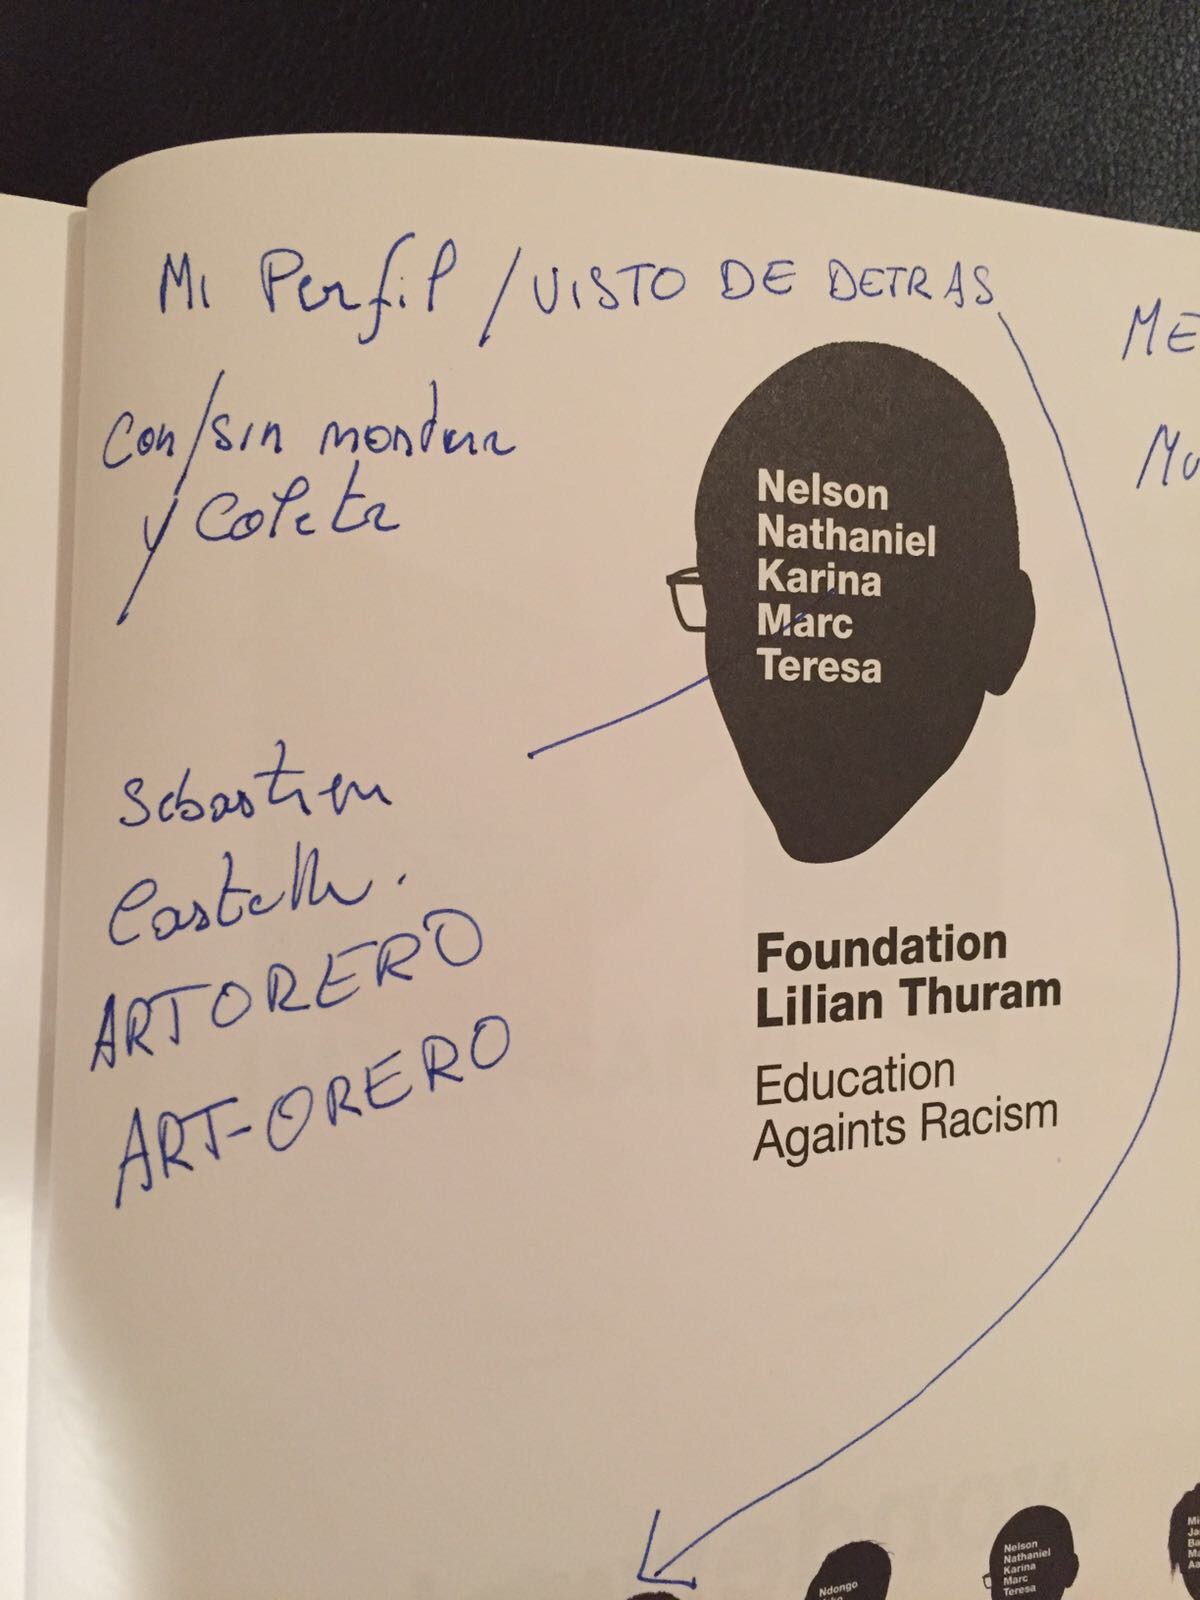 Mi Perfil / VISTO DE DETRAS
Con/sin montera
y Coleta
ME
Mu
Nelson
Nathaniel
Karina
Marc
Teresa
Sebastien
Castella.
ARTORERO
ART-ORERO
Foundation
Lilian Thuram
Education
Againts Racism
Ndongo
Nelson
Nathaniel
Karina
Marc
Teresa
Mi
Ja
Ba
Ma
Aa